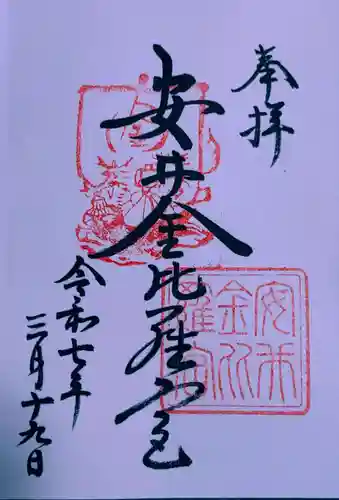 奉拝
安井金比羅宮
令和七年
三月十九日
安井
金比
羅宮